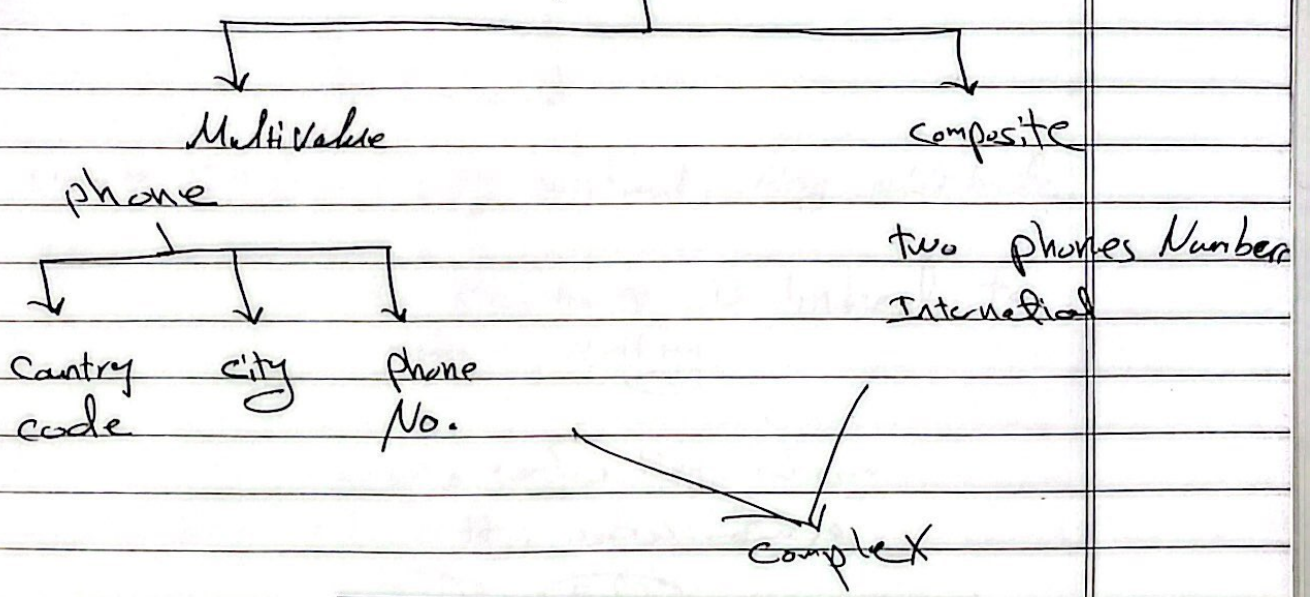 Multivalue
composite
phone
two phones Numbers
Internatial
Country code
city
phone No.
complex